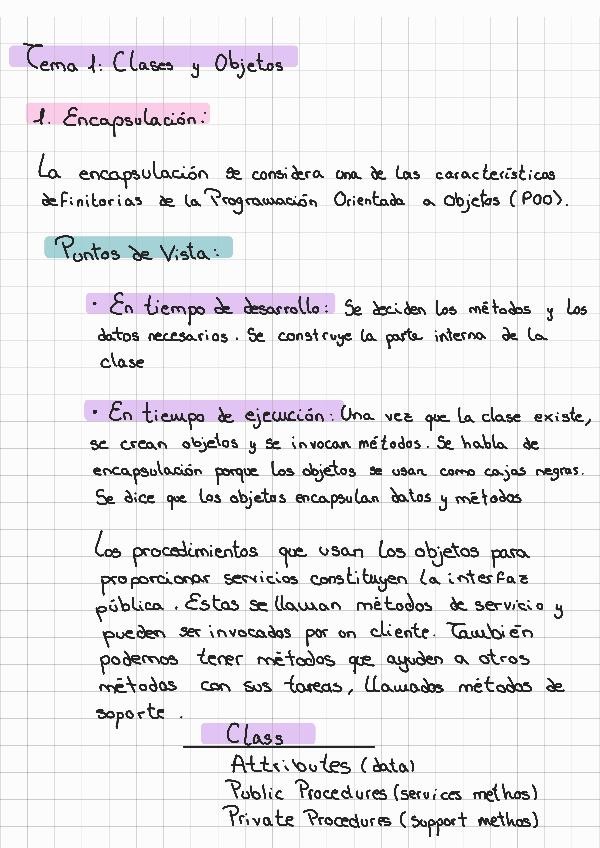 Tema 1: Clases y Objetos
1. Encapsulación:
La encapsulación se considera una de las características
definitorias de la Programación Orientada a Objetos (POO).
Puntos de Vista:
· En tiempo de desarrollo: Se deciden los métodos y los
datos necesarios. Se construye la parte interna de la
clase
· En tiempo de ejecución: Una vez que la clase existe,
se crean objetos y se invocan métodos. Se habla de
encapsulación porque los objetos se usan como cajas negras.
Se dice que los objetos encapsulan datos y métodos
Los procedimientos que usan los objetos para
proporcionar servicios constituyen la interfaz
pública. Estas se llaman métodos de servicio y
pueden ser invocados por un cliente. También
podemos tener métodos que ayuden a otros
métodos con sus tareas, llamados métodos de
soporte.
Class
Attributes (data)
Public Procedures (services methos)
Private Procedures (support methos)